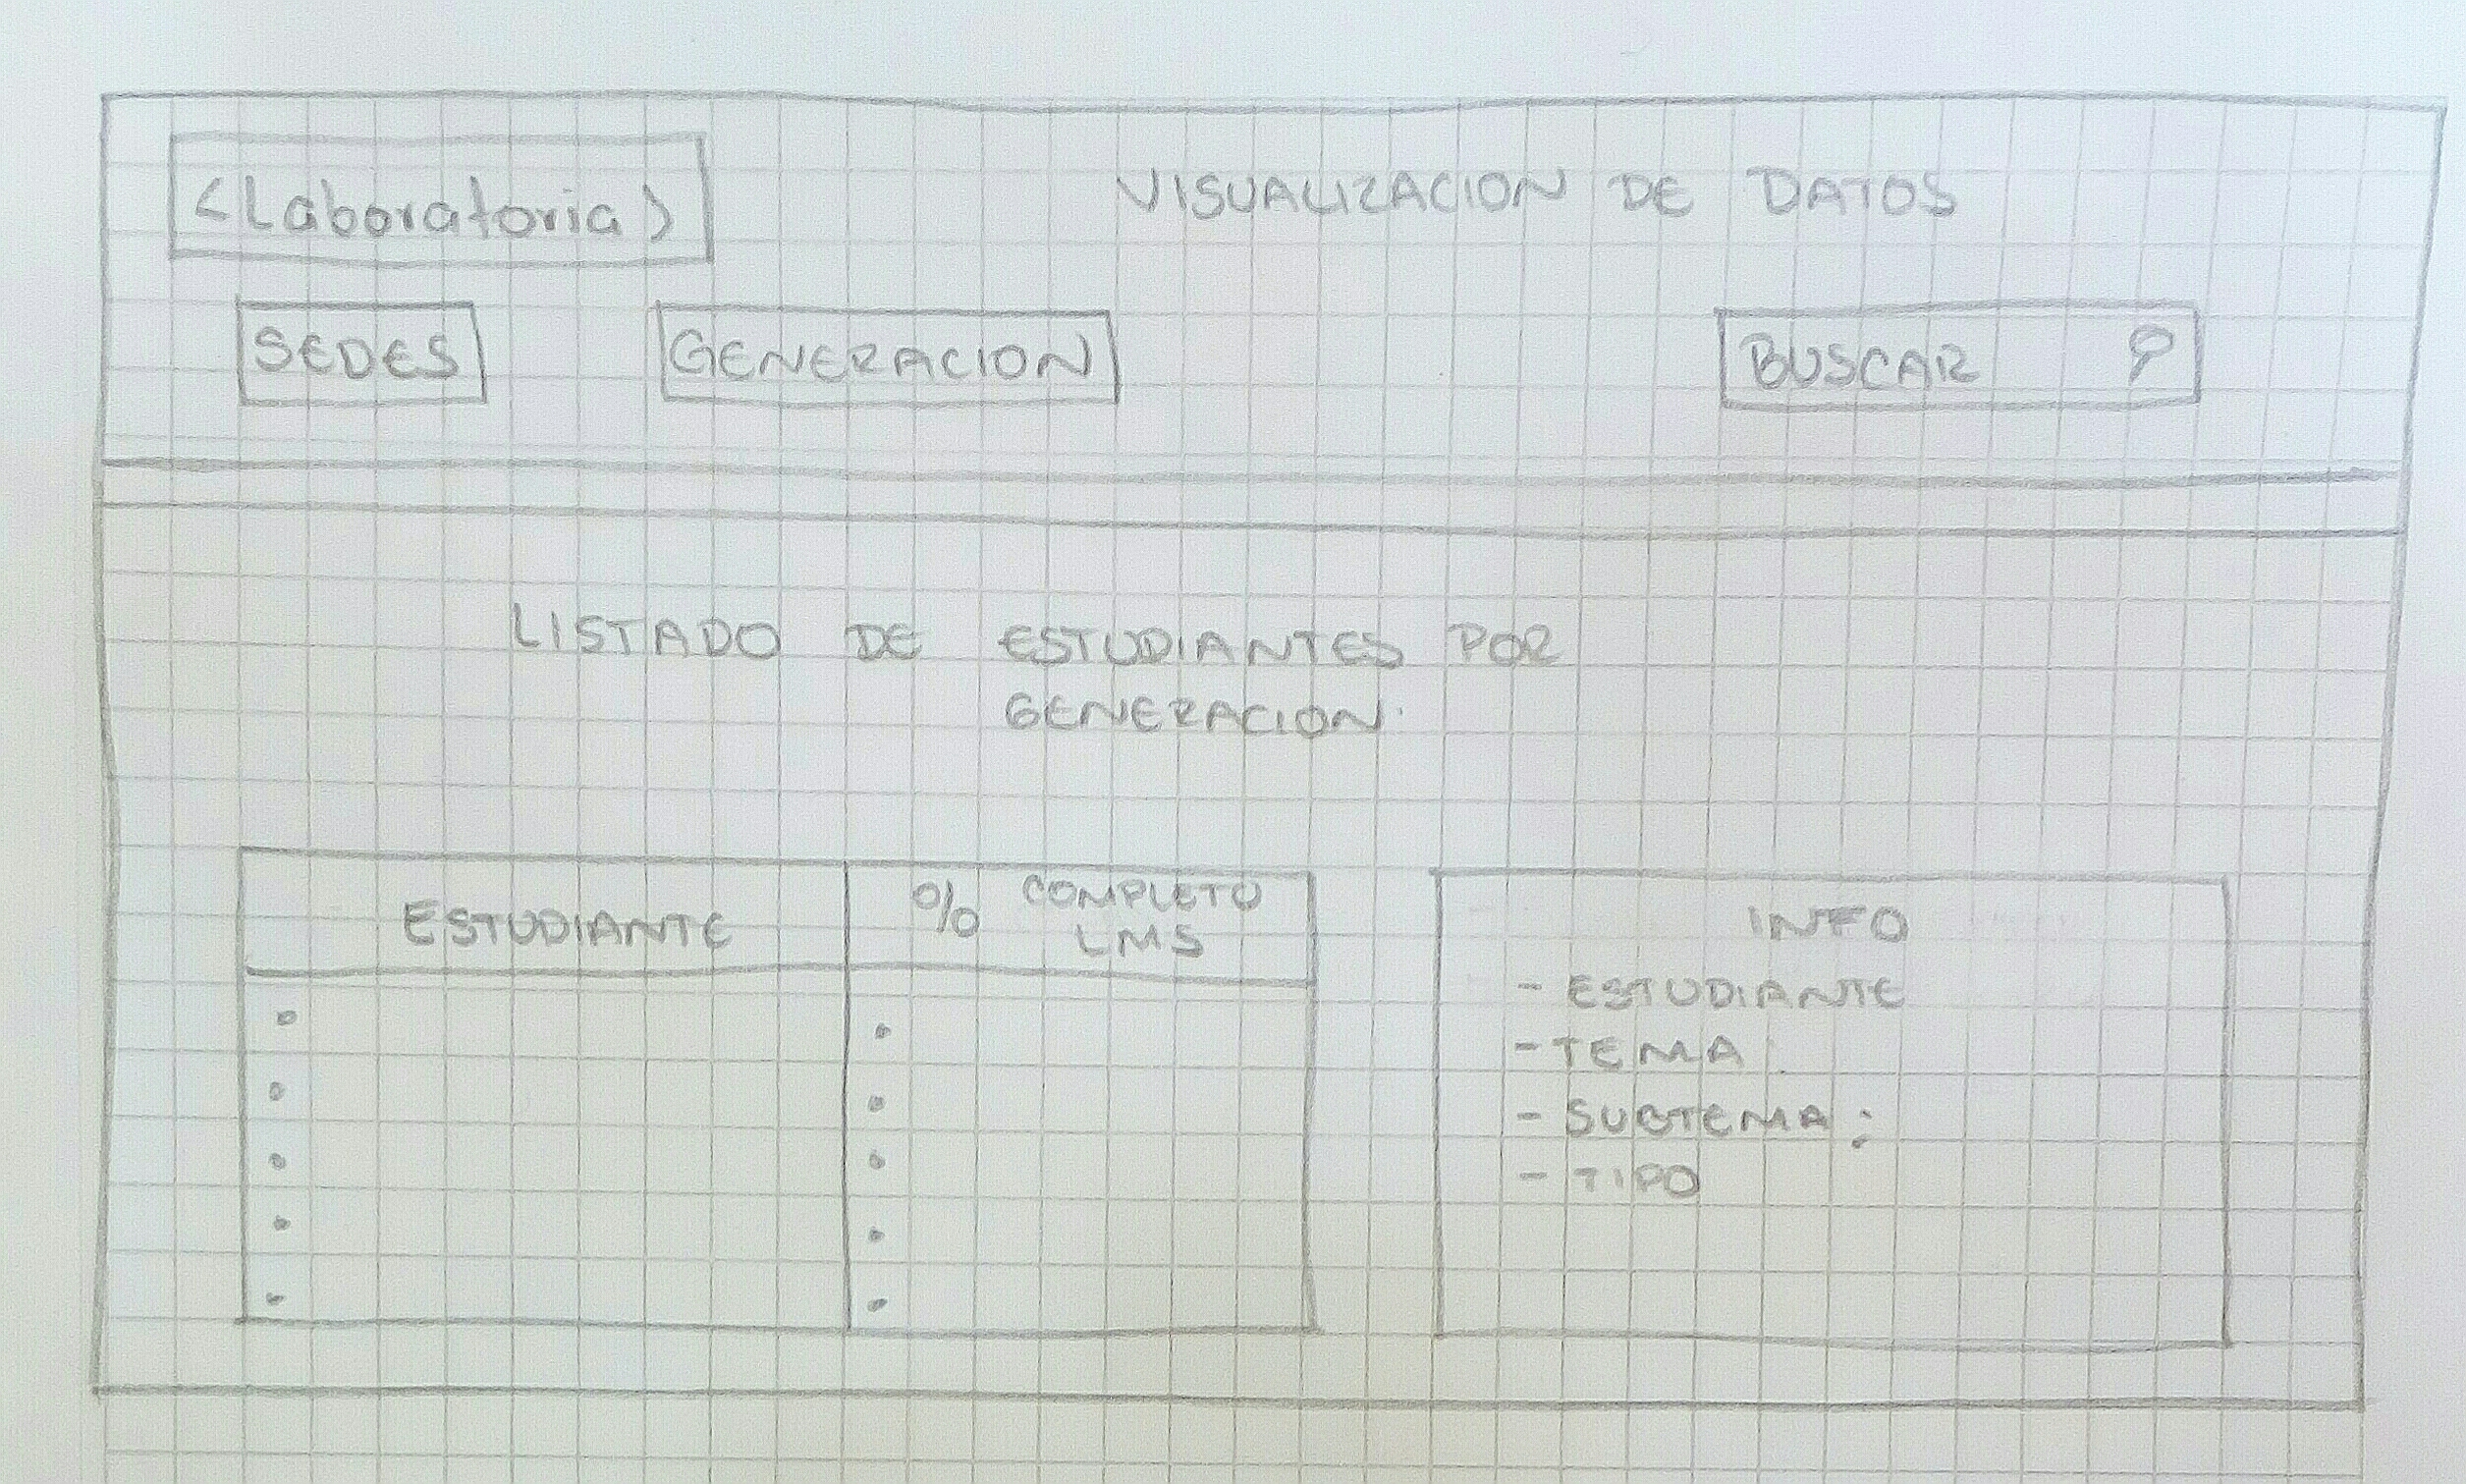 <Laboratoria>
VISUALIZACION DE DATOS
SEDES
GENERACION
BUSCAR
LISTADO DE ESTUDIANTES POR
GENERACION.
ESTUDIANTE
% COMPLETO
LMS
INFO
- ESTUDIANTE
- TEMA :
- SUBTEMA :
- TIPO